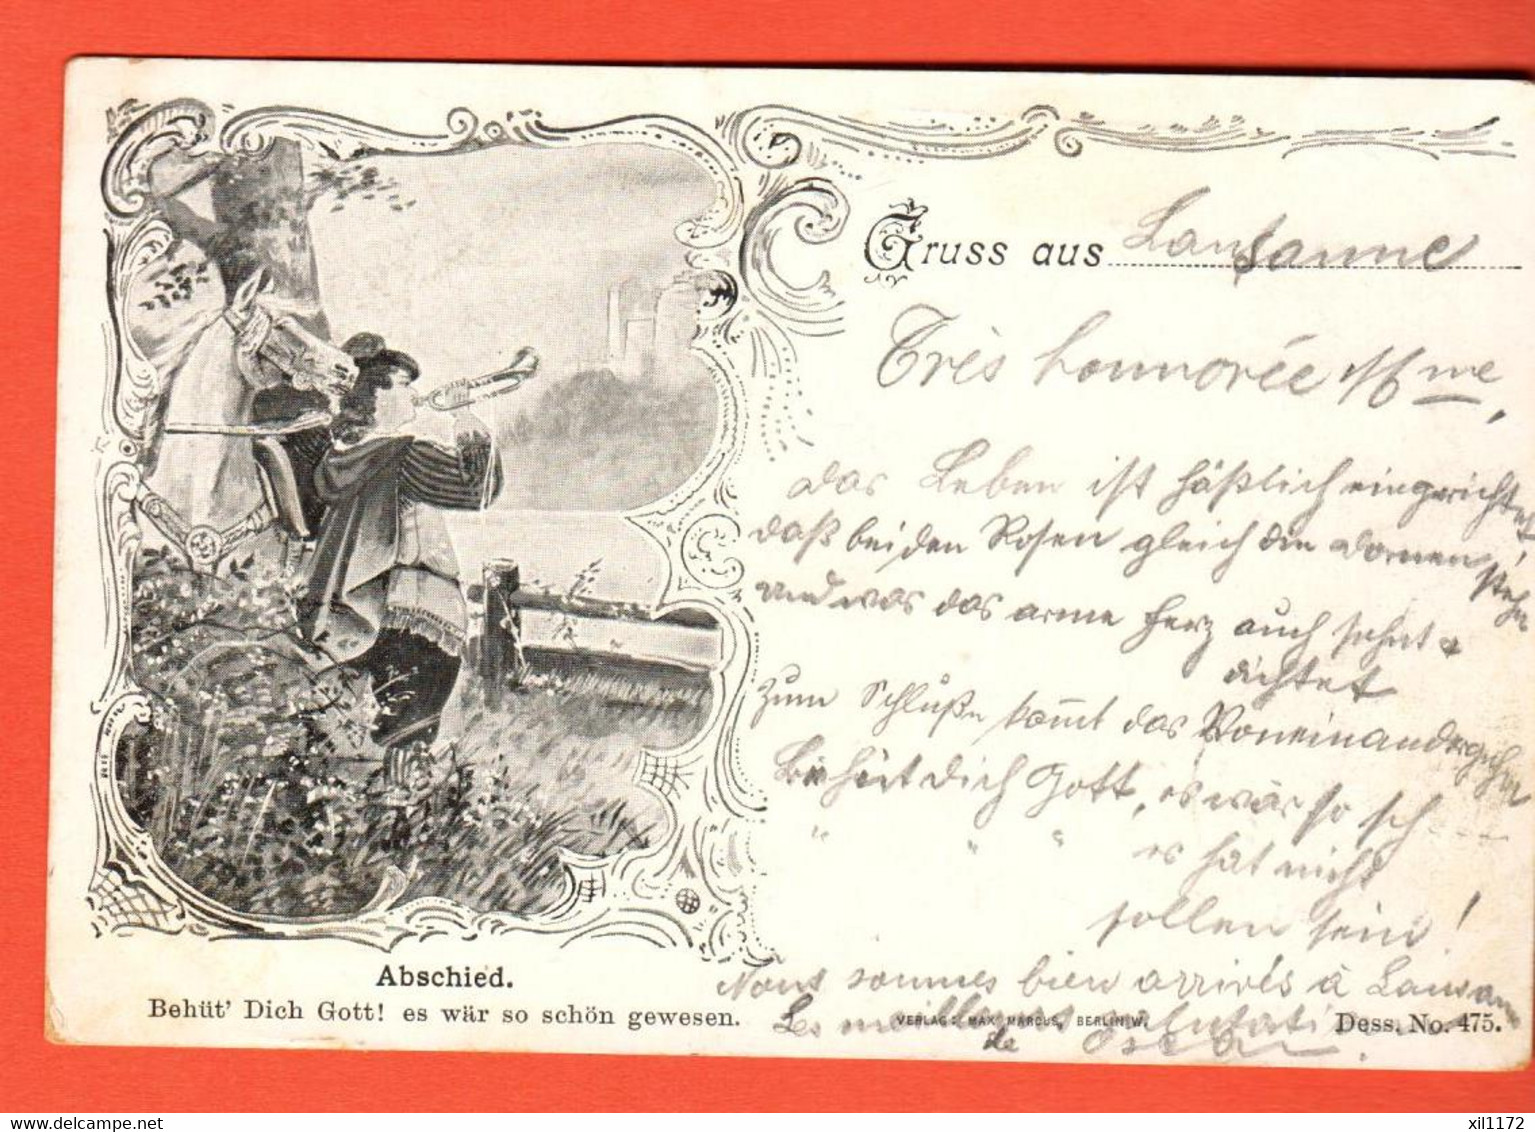 Gruss aus Lausanne
Très honnorée Mme,
das Leben ist häßlich eingerichtet,
daß bei den Rosen gleich die Dornen stehn
und was das arme Herz auch sehnt &
dichtet
zum Schluße kom̅t das Voneinandergehen
Behüt dich Gott, es wär so sch---
" " " es hat nicht
sollen sein!
Nous sommes bien arrivés à Lausanne
Les meilleures
de Oscar.
Abschied.
Behüt' Dich Gott! es wär so schön gewesen.
VERLAG: MAX MARCUS, BERLIN W.
Dess. No. 475.
delcampe.net
xil1172